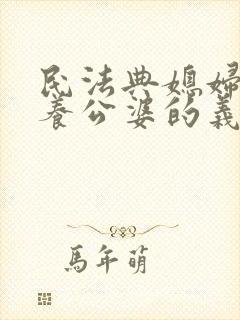 民法典媳婦
養公婆的義
馬年萌